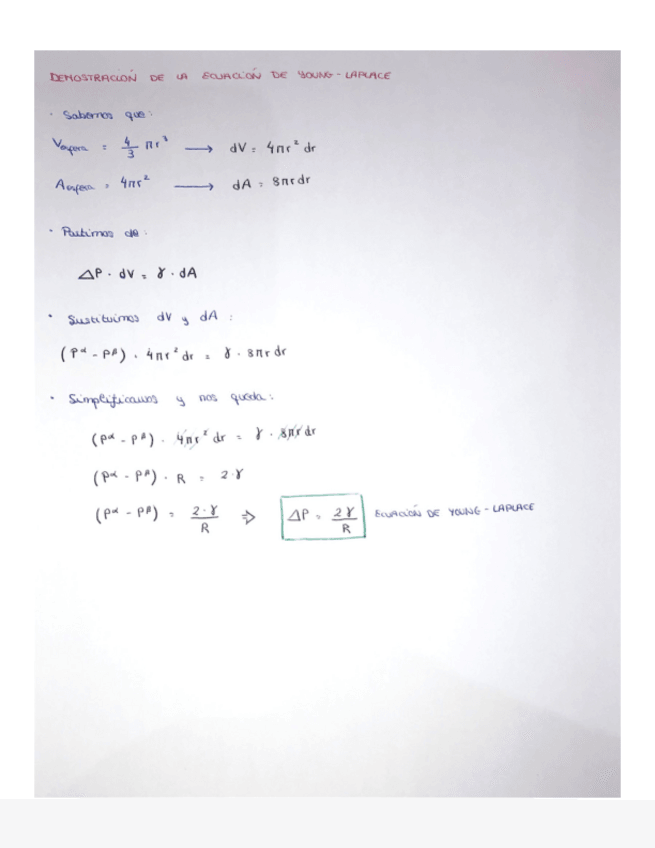 DEMOSTRACIÓN DE LA ECUACIÓN DE YOUNG - LAPLACE
· Sabemos que:
Vesfera = 4/3 πr³ → dV = 4πr² dr
Aesfera = 4πr² → dA = 8πr dr
· Partimos de:
ΔP · dV = γ · dA
· Sustituimos dV y dA :
(Pα - Pβ) · 4πr² dr = γ · 8πr dr
· Simplificamos y nos queda:
(Pα - Pβ) · 4πr² dr = γ · 8πr dr
(Pα - Pβ) · R = 2·γ
(Pα - Pβ) = 2·γ/R ⇒ ΔP = 2γ/R ECUACIÓN DE YOUNG - LAPLACE